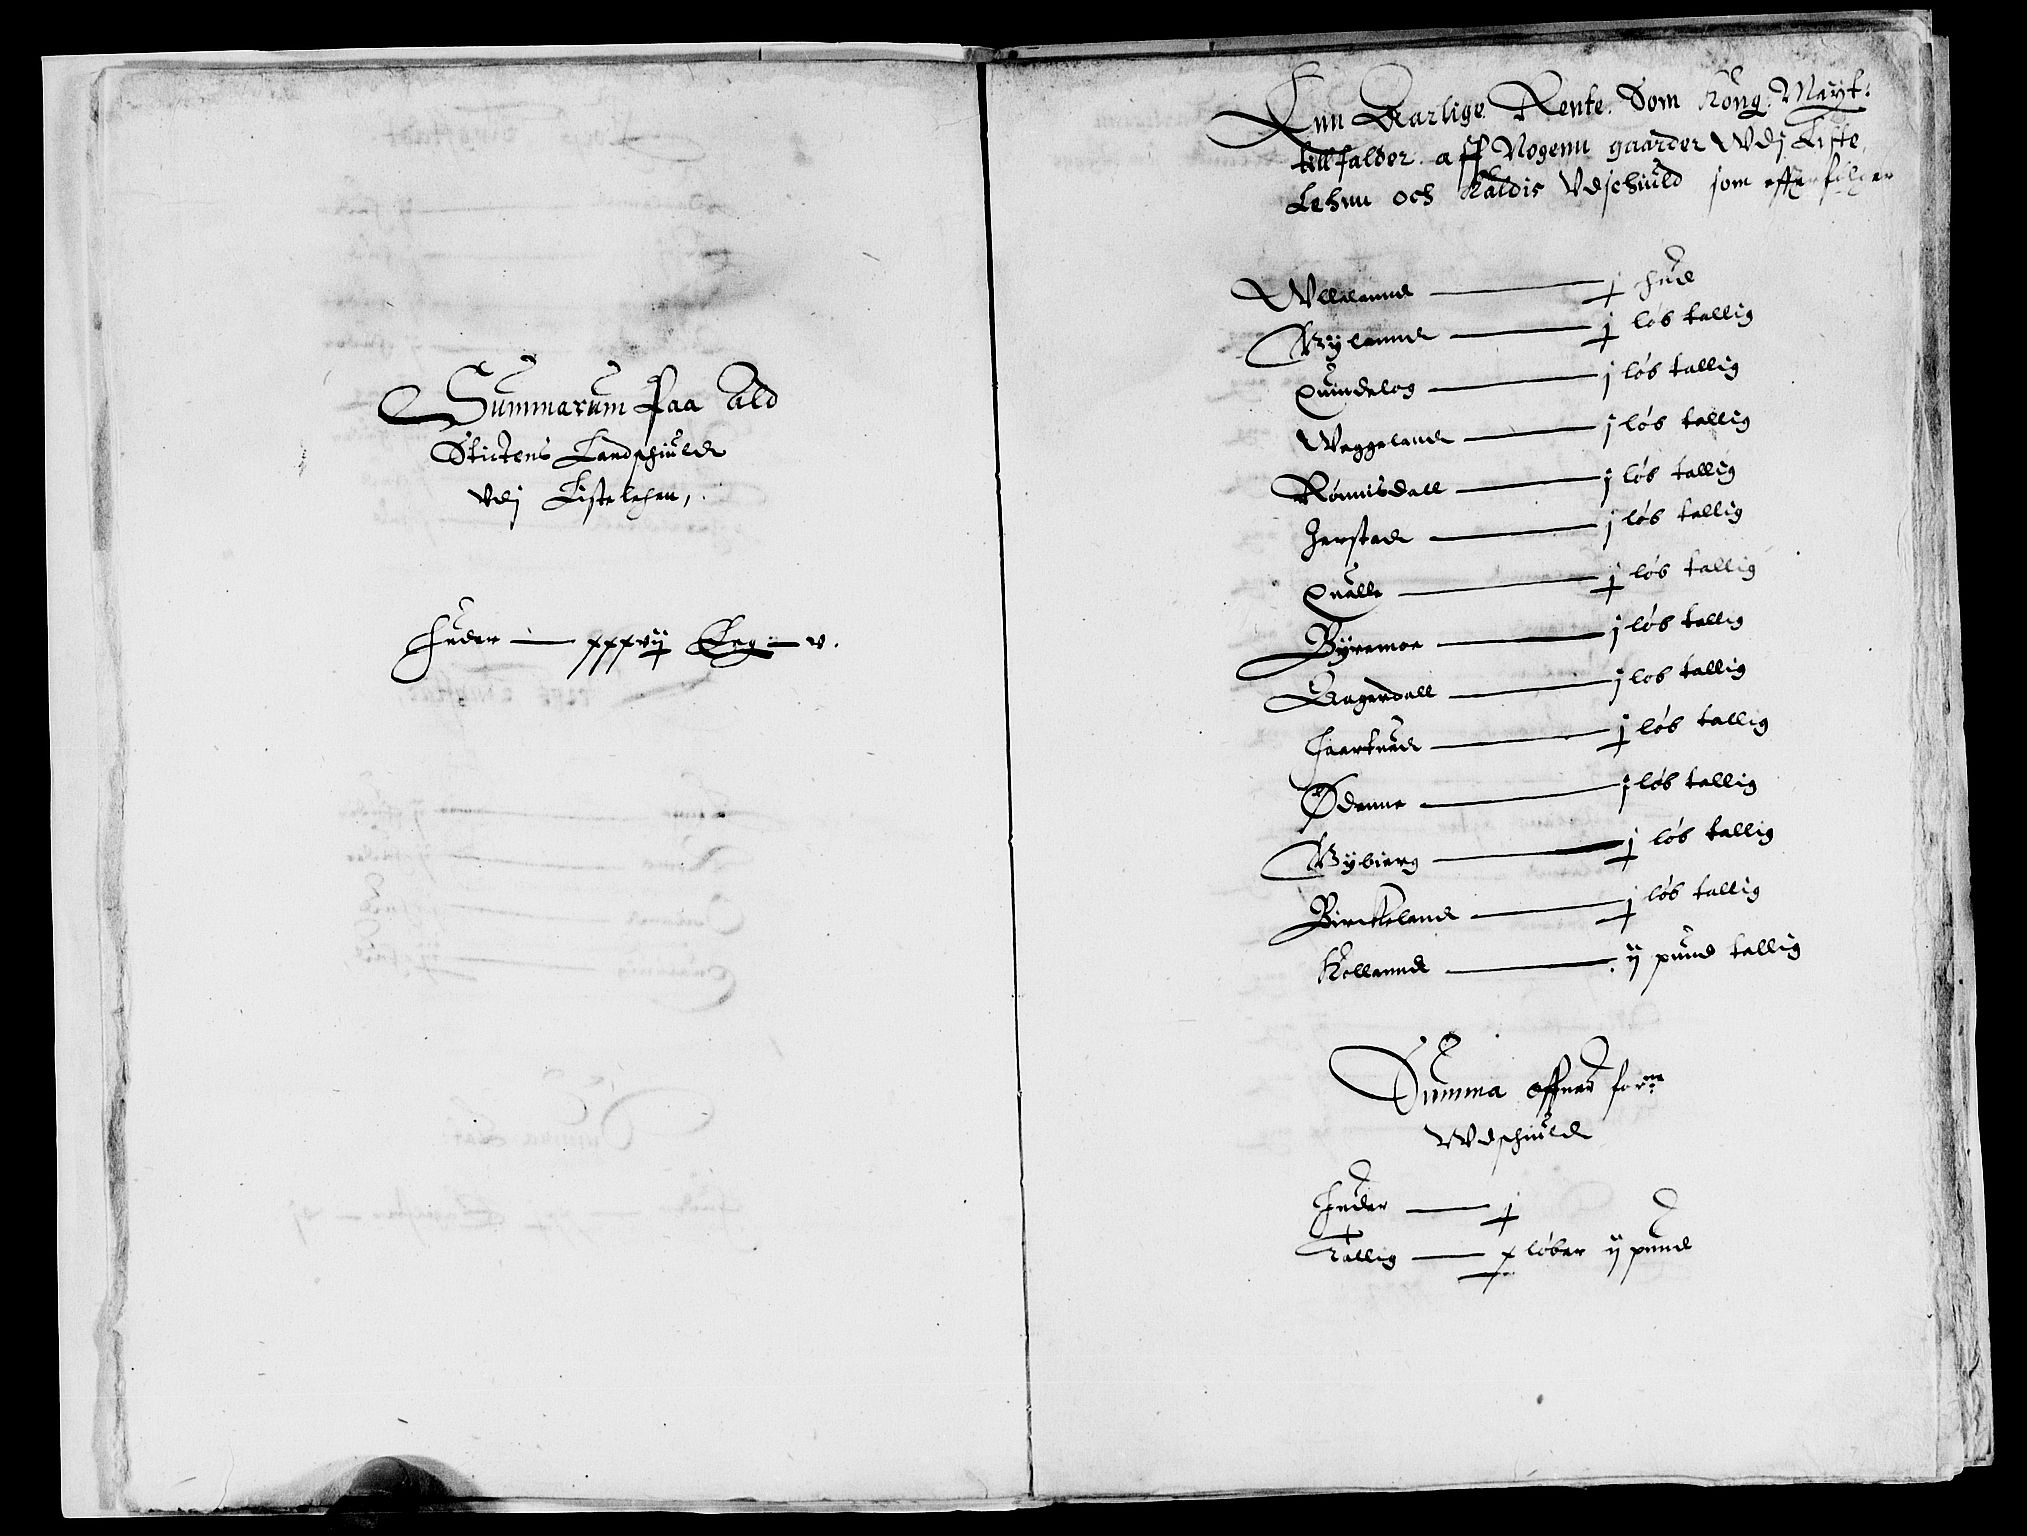 Summarum Paa Ald
Stictens Landschiuld
Vdj Listelehen,
Huder — xxxvij Eng — v.
Enn Aarlige Rente Som Kong: Mayt:
tillfalder aff Nogenn gaarder Vdj Liste
Lehnn och kaldis Vdschiuld som effterfølger
Vllelannd — j hud
Bylannd — j løb tallig
Quindelog — j løb tallig
Weggeland — j løb tallig
Rønnisdall — j løb tallig
Jerstad — j løb tallig
Qualle — j løb tallig
Byremoe — j løb tallig
Aagerdall — j løb tallig
Haartued — j løb tallig
Ødenne — j løb tallig
Bybierg — j løb tallig
Birckeland — j løb tallig
Kollannd — ij pund tallig
Summa offuer forne
Vdschiuld
Huder — j
Tallig — x løber ij pund